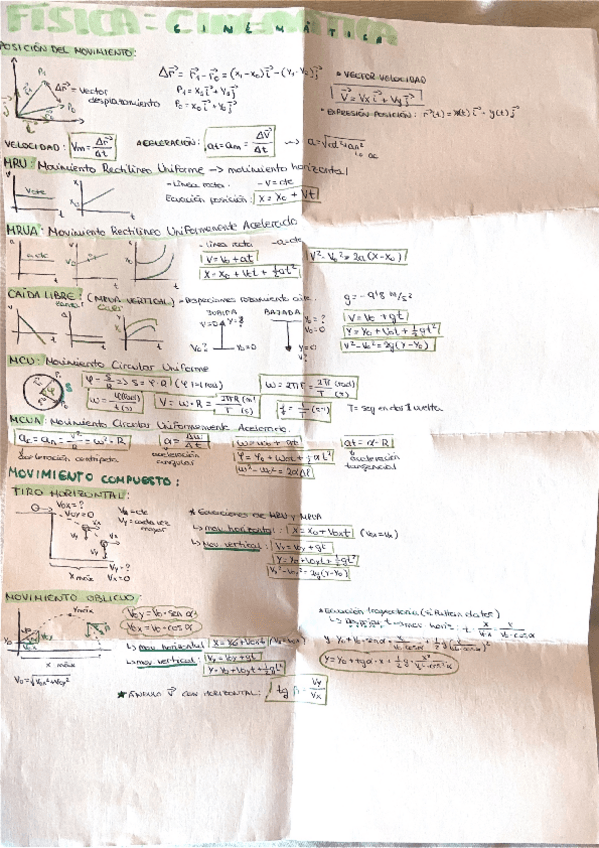 FÍSICA: CINEMÁTICA
CINEMÁTICA
POSICIÓN DEL MOVIMIENTO:
Δr⃗ = vector desplazamiento
Δr⃗ = r⃗₁ - r⃗₀ = (x₁-x₀)i⃗ - (y₁-y₀)j⃗
P₁ = x₁i⃗ + y₁j⃗
P₀ = x₀i⃗ + y₀j⃗
* VECTOR VELOCIDAD
V⃗ = Vx i⃗ + Vy j⃗
* EXPRESIÓN POSICIÓN: r⃗(t) = x(t) i⃗ - y(t) j⃗
VELOCIDAD: Vm = Δr⃗/Δt ACELERACIÓN: at = am = ΔV⃗/Δt → a = √at²+an²
MRU: Movimiento Rectilíneo Uniforme → movimiento horizontal
- Línea recta - V = cte
Ecuación posición: x = x₀ + Vt
MRUA: Movimiento Rectilíneo Uniformemente Acelerado
- línea recta - a = cte
V = V₀ + at
x = x₀ + V₀t + ½at²
V² - V₀² = 2a(x-x₀)
CAÍDA LIBRE: (MRUA VERTICAL) - Despreciamos rozamiento aire.
g = -9'8 m/s²
SUBIDA
BAJADA
V = V₀ + gt
y = y₀ + V₀t + ½gt²
V² - V₀² = 2g(y-y₀)
MCU: Movimiento Circular Uniforme
φ = S/R => S = φ·R (φ 1=1 rad)
ω = 2πf = 2π/T (rad)/(s)
ω = φ(rad)/t(s)
V = ω·R = 2πR(m)/T (s)
f = 1/T (s⁻¹)
T = seg en dar 1 vuelta
MCUA: Movimiento Circular Uniformemente Acelerado.
ac = an = v²/R = ω²·R
aceleración centrípeta
α = Δω/Δt
aceleración angular
ω = ω₀ + αt
φ = φ₀ + ω₀t + ½αt²
ω² - ω₀² = 2αΔφ
at = α·R
aceleración tangencial
MOVIMIENTO COMPUESTO:
TIRO HORIZONTAL:
V₀x = ?
V₀y = 0
Vx = cte
Vy = cada vez mayor
Vy = ?
Vx = 0
x máx
* Ecuaciones de MRU y MRUA
↳ mov. horizontal: x = x₀ + V₀xt (V₀x = Vx)
↳ Mov. vertical: Vy = V₀y + gt
y = y₀ + V₀yt + ½gt²
Vy² - V₀y² = 2g(y-y₀)
MOVIMIENTO OBLICUO
y máx
x máx
V₀ = √V₀x²+V₀y²
V₀y = V₀·sen α
V₀x = V₀·cos α
↳ mov horizontal: x = x₀ + V₀xt
↳ mov vertical: Vy = V₀y + gt
y = y₀ + V₀yt + ½gt²
★ ÁNGULO V⃗ CON HORIZONTAL: tg β = Vy/Vx
* Ecuación trayectoria (si faltan datos)
y = y₀ + tgα·x + ½g x²/V₀²·cos²α